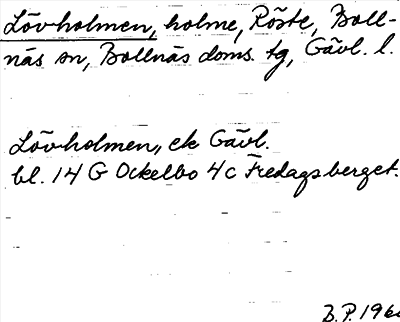 Lövholmen, holme, Röste, Boll-
näs sn, Bollnäs doms. tg, Gävl. l.
Lövholmen, ek Gävl.
bl. 14 G Ockelbo 4c Fredagsberget.
B.P. 196